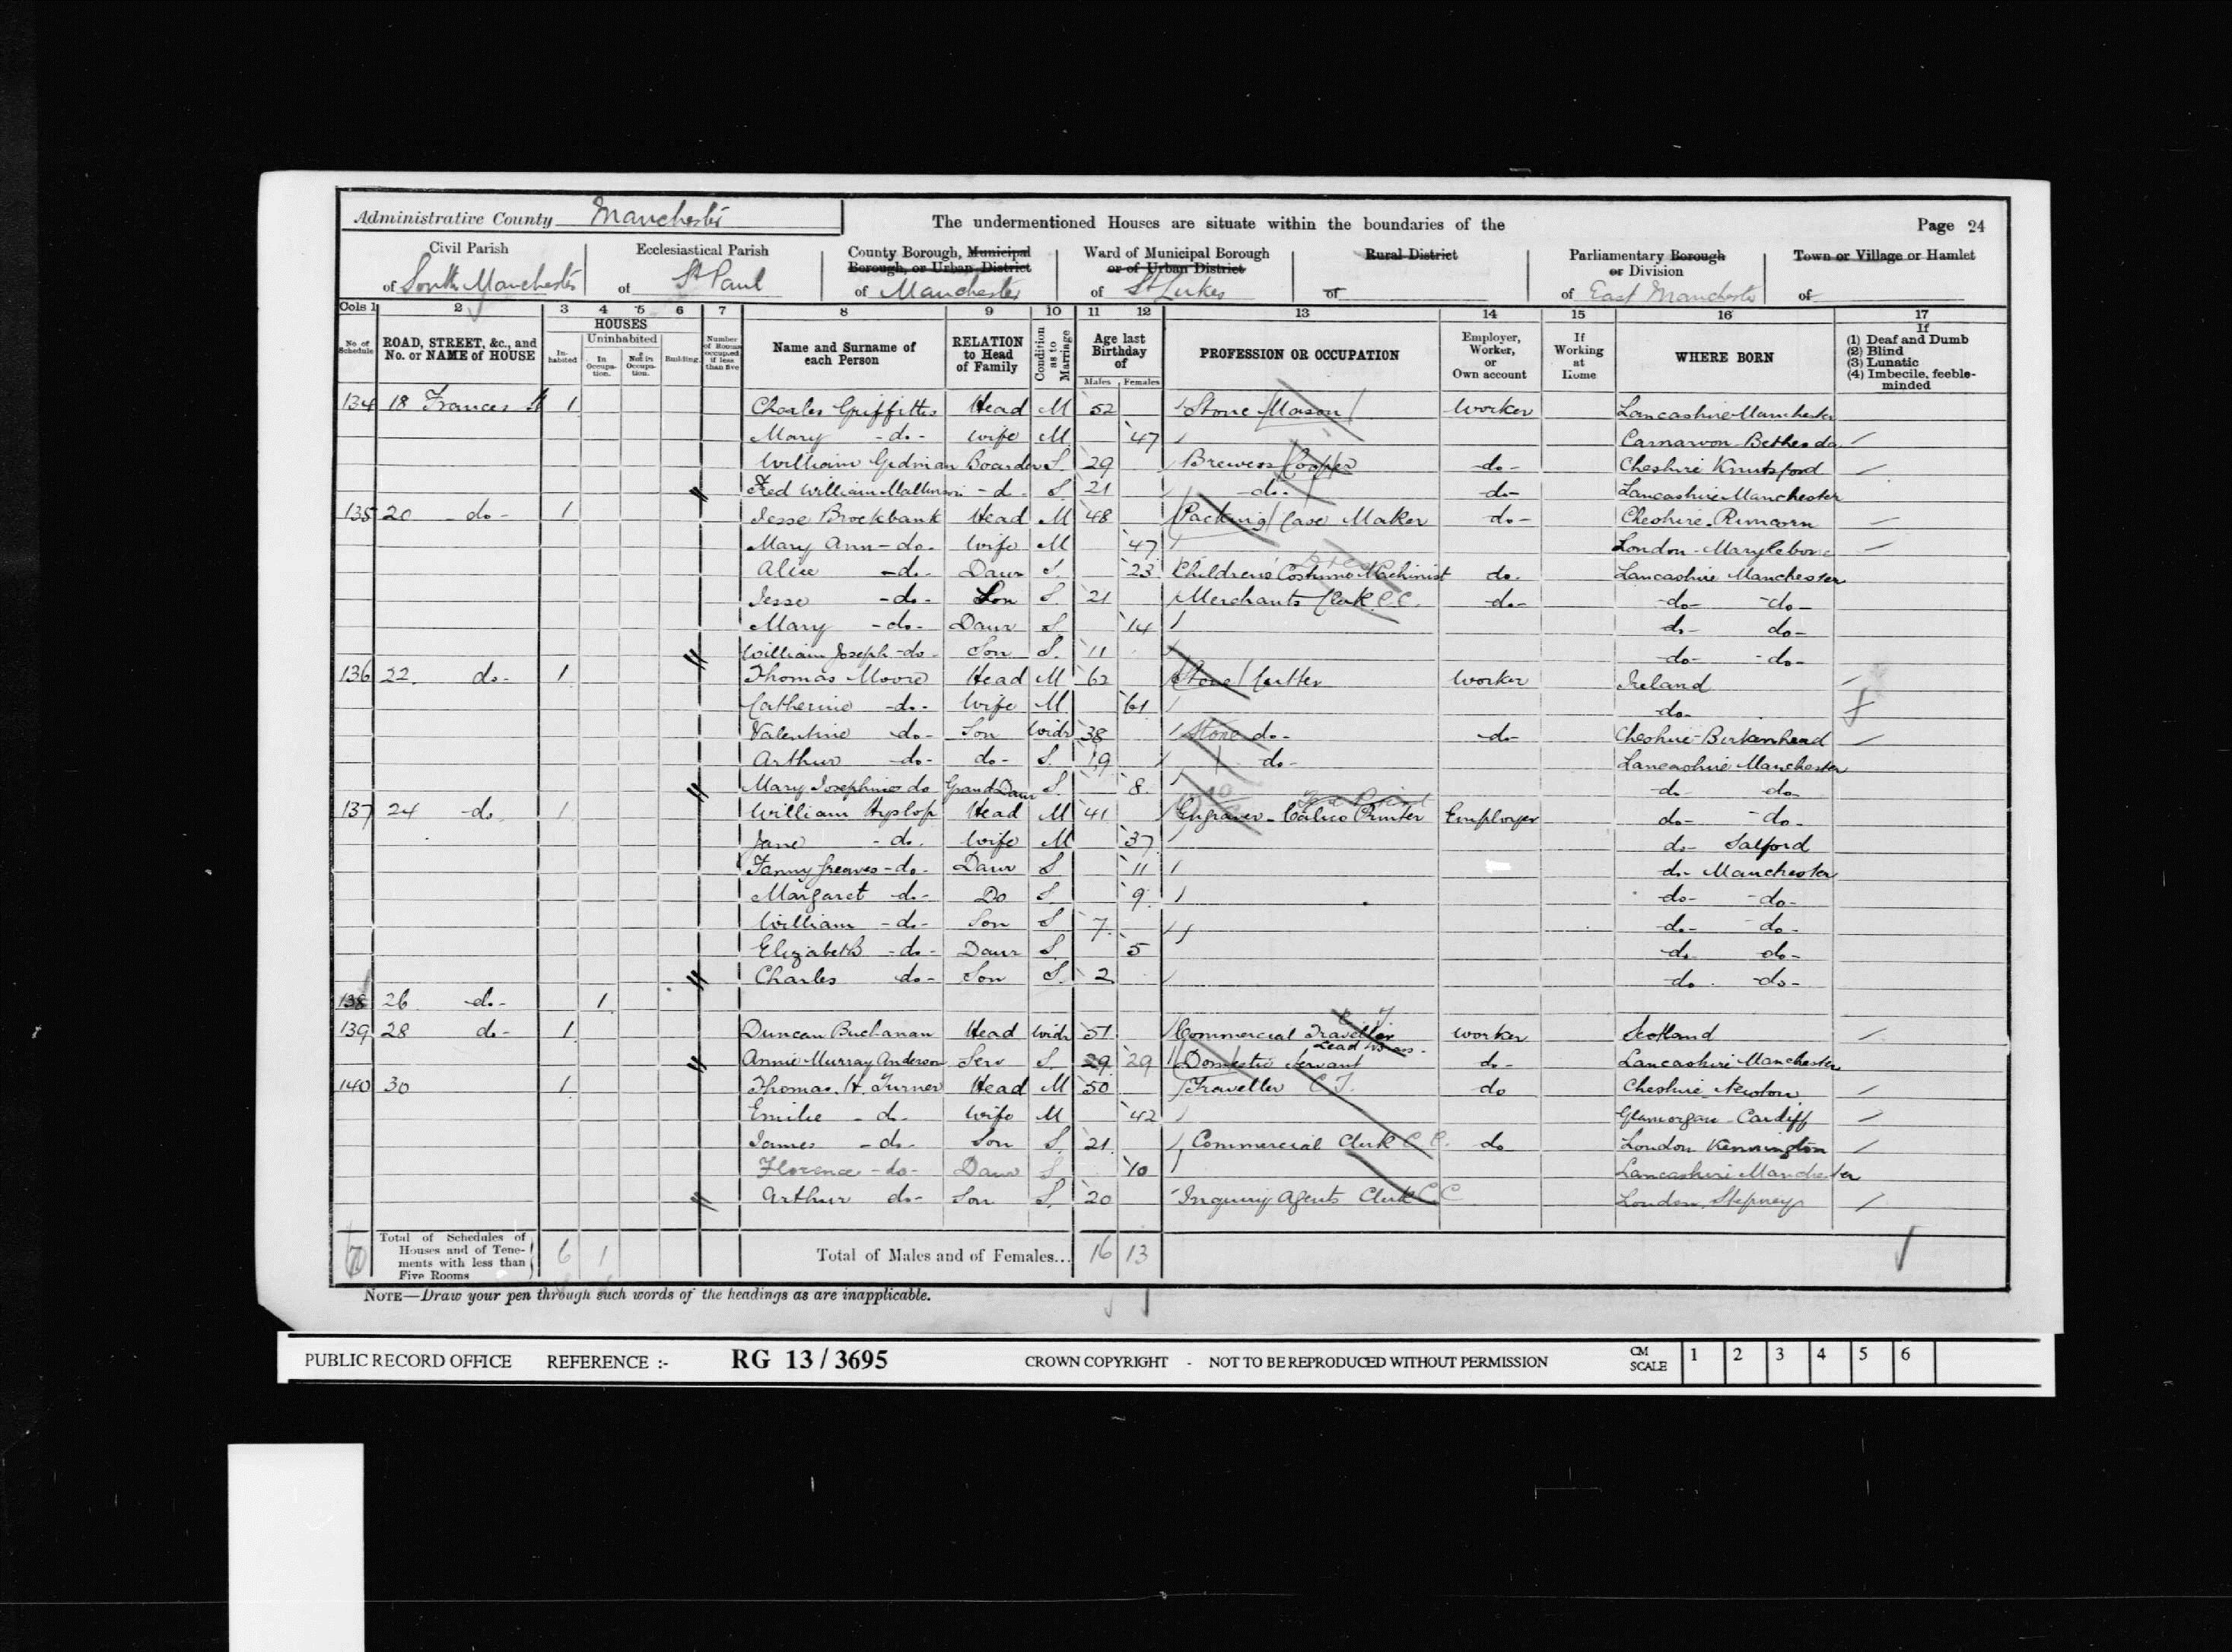 Administrative County Manchester
The undermentioned Houses are situate within the boundaries of the
Page 24
Civil Parish of South Manchester
Ecclesiastical Parish of St Paul
County Borough, Municipal Borough, or Urban District of Manchester
Ward of Municipal Borough or of Urban District of St Lukes
Rural District of
Parliamentary Borough or Division of East Manchester
Town or Village or Hamlet of
Cols 1 2 3 4 5 6 7 8 9 10 11 12 13 14 15 16 17
No. of Schedule
ROAD, STREET, &c., and No. or NAME of HOUSE
HOUSES
In-habited
Uninhabited
In Occupa-tion.
Not in Occupa-tion.
Building.
Number of Rooms occupied if less than five
Name and Surname of each Person
RELATION to Head of Family
Condition as to Marriage
Age last Birthday of
Males Females
PROFESSION OR OCCUPATION
Employer, Worker, or Own account
If Working at Home
WHERE BORN
If (1) Deaf and Dumb (2) Blind (3) Lunatic (4) Imbecile, feeble-minded
134 18 Frances St 1 Charles Griffiths Head M 52 Stone Mason Worker Lancashire Manchester
Mary -do- Wife M 47 Carnarvon Bethesda
William Gedman Boarder S. 29 Brewers Cooper -do- Cheshire Knutsford
Fred William -do- S 21 -do- -do- Lancashire Manchester
135 20 -do- 1 Jesse Brockbank Head M 48 Packing Case Maker -do- Cheshire. Runcorn
Mary Ann -do- Wife M 47 London - Marylebone
Alice -do- Daur S 23 Childrens Costume Machinist do- Lancashire Manchester
Jesse -do- Son S. 21 Merchants Clerk C.C. -do- -do- -do-
Mary -do- Daur S 14 do- do-
William Joseph -do- Son S. 11 -do- -do-
136 22. do- 1 Thomas Moore Head M 62 Stone Cutter Worker Ireland
Catherine -do- Wife M 61 -do-
Valentine do- Son Widr 38 Stone do- -do- Cheshire - Birkenhead
Arthur -do- do- S. 19 do- Lancashire Manchester
Mary Josephine do Grand Daur S 8. -do- do-
137 24 -do 1 William Hyslop Head M 41 Engraver - Calico Printer Employer do- -do-
Jane -do. Wife M 37 do- Salford
Fanny Greaves -do- Daur S 11 do- Manchester
Margaret do- Do S. 9. -do- -do-
William -do- Son S 7. -do- do-
Elizabeth -do- Daur S. 5 -do- do-
Charles do- Son S. 2 -do -do-
138 26 -do- 1
139 28 do- 1 Duncan Buchanan Head Widr 51 Commercial Traveller C T Worker Scotland
Annie Murray Anderson Serv S. 29 29 Domestic Servant do- Lancashire Manchester
140 30 1 Thomas. H. Turner Head M 50 Traveller C.T. do Cheshire Newton
Emilie -do- Wife M 42 Glamorgan - Cardiff
James -do- Son S. 21. Commercial Clerk C.C. do London Kennington
Florence -do- Daur S 10 Lancashire Manchester
Arthur do- Son S. 20 Inquiry Agents Clerk C C London, Stepney
Total of Schedules of Houses and of Tene-ments with less than Five Rooms 6 1
Total of Males and of Females... 16 13
NOTE—Draw your pen through such words of the headings as are inapplicable.
PUBLIC RECORD OFFICE REFERENCE :- RG 13 / 3695 CROWN COPYRIGHT - NOT TO BE REPRODUCED WITHOUT PERMISSION CM SCALE 1 2 3 4 5 6